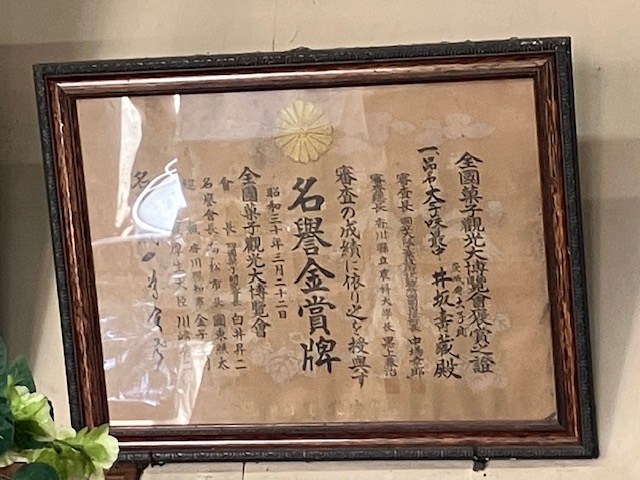 全國菓子觀光大博覽會褒賞之證
茨城縣大子町
一品名大子咲最中 井坂壽藏殿
審査長
審査總長 香川縣立農科大學長
審査の成績に依り之を授與す
名譽金賞牌
昭和三十年三月二十二日
全國菓子觀光大博覽會
會長 白井昇二
名譽會長 高松市長 國東照太
香川縣知事 金子
厚生大臣 川崎
名